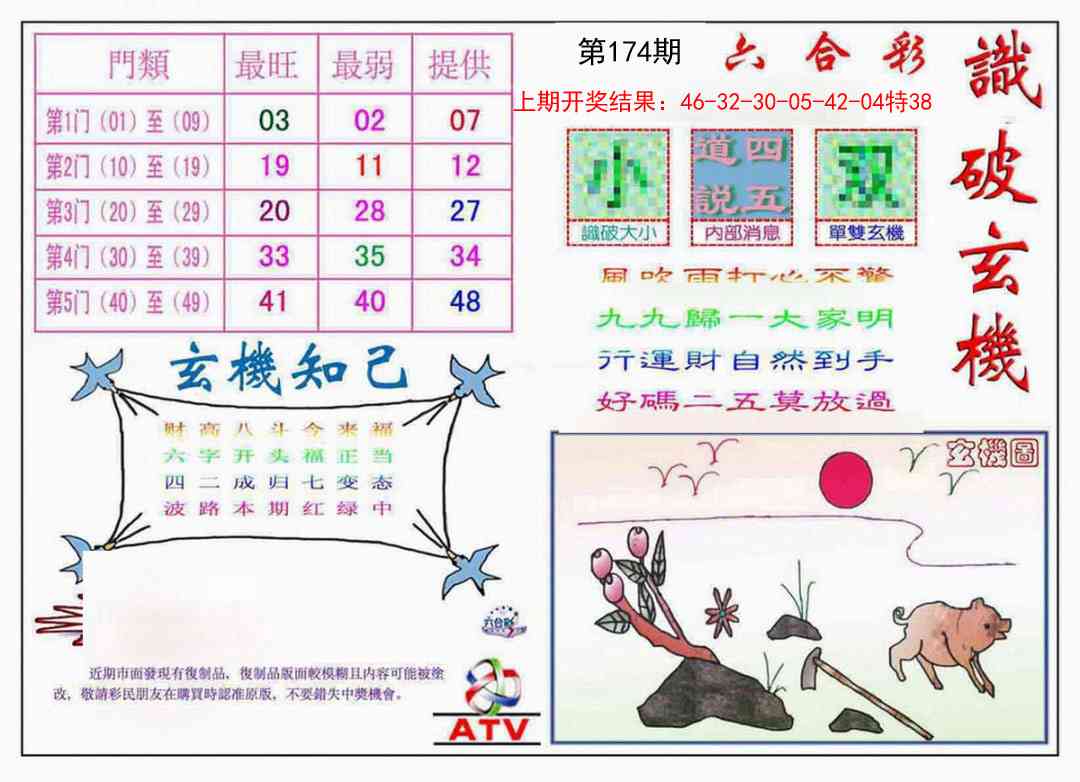 門類 最旺 最弱 提供
第1门（01）至（09） 03 02 07
第2门（10）至（19） 19 11 12
第3门（20）至（29） 20 28 27
第4门（30）至（39） 33 35 34
第5门（40）至（49） 41 40 48
第174期 六合彩
上期开奖结果：46-32-30-05-42-04特38
識破玄機
小 道四 双
説五
識破大小 内部消息 單雙玄機
風吹雨打心不驚
九九歸一大家明
行運財自然到手
好碼二五莫放過
玄機知己
财高八斗今来福
六字开头福正当
四二成归七变态
波路本期红绿中
玄機圖
六合彩
近期市面發現有復制品、復制品版面較模糊且内容可能被塗
改，敬請彩民朋友在購買時認准原版，不要錯失中獎機會。
ATV